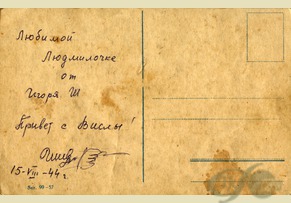 Любимой
Людмилочке
от
Игоря Ш
Привет с Вислы!
15-VIII-44 г.